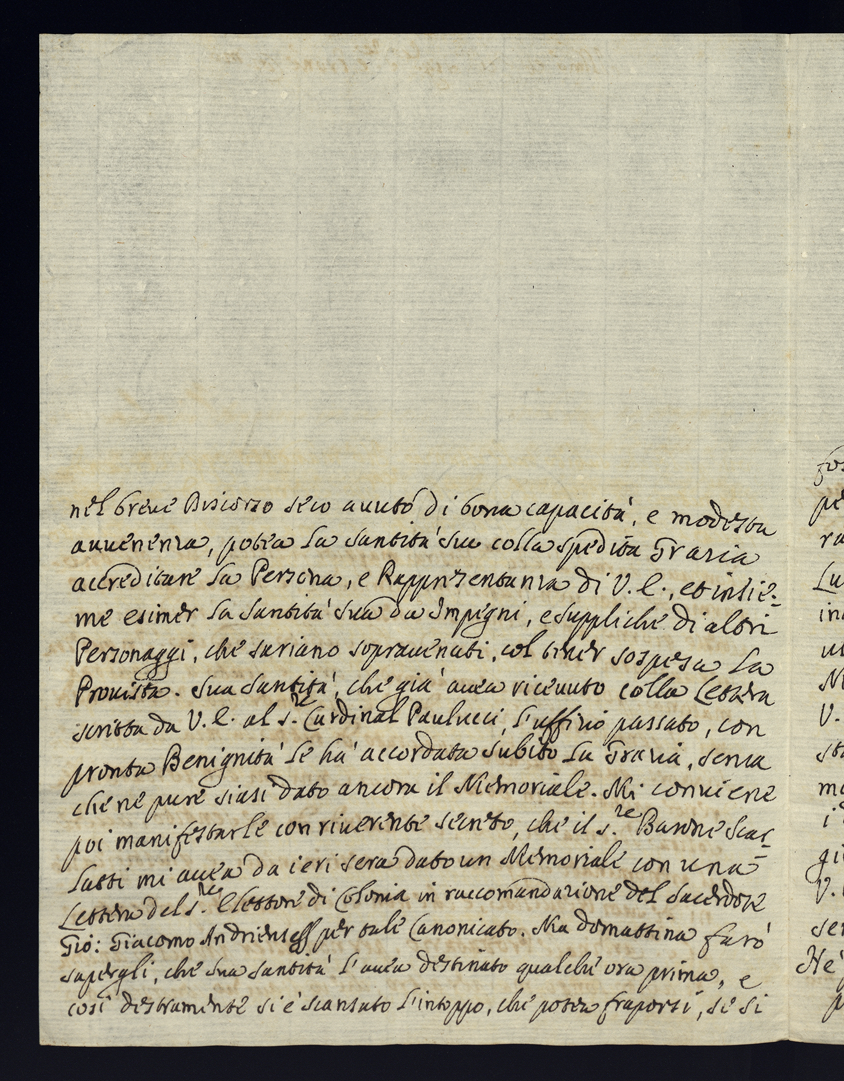 nel breve Discorso seco avuto di bona capacità, e modesta
avvenenza, potea la Santità Sua colla spedita Grazia
accreditare la Persona, e Rappresentanza di V. E., et insie-
me esimer la Santità Sua da Impegni, e suppliche di altri
Personaggi, che sariano sopravenuti, col tener sospesa la
Provista. Sua Santità, che già avea ricevuto colla Lettera
scritta da V. E. al S.re Cardinal Paulucci, l'uffizio passato, con
pronta Benignità le hà accordata subito la Grazia, senza
che ne pure siasi dato ancora il Memoriale. Mi conviene
poi manifestarle con riverente secreto, che il S.re Barone Scar-
latti mi avea da ieri sera dato un Memoriale con una
Lettera del S.re Elettore di Colonia in raccomandazione del Sacerdote
Gio: Giacomo per tale Canonicato. Ma domattina farò
sapergli, che Sua Santità l'avea destinato qualche ora prima, e
così destramente si è scansato l'intoppo, che potea fraporsi, se si
fos
pe
ra
Lu
in
V.
sta
ma
gi
V.
ser
Nè